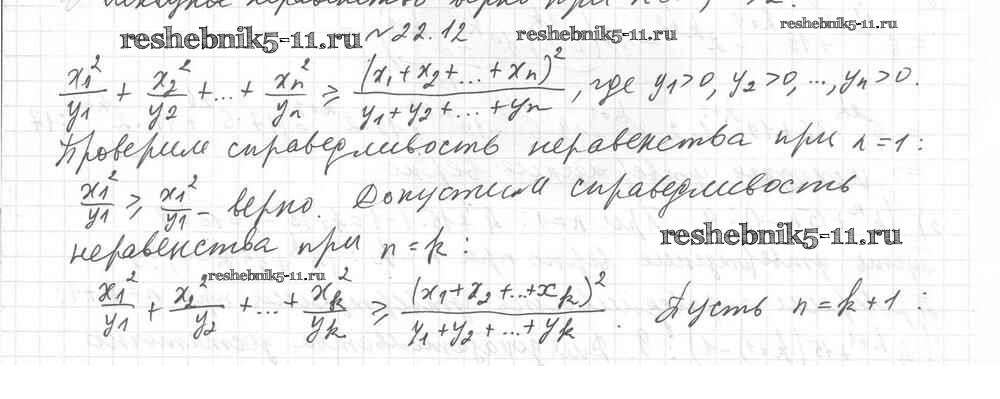 Исходное неравенство верно при n
reshebnik5-11.ru №22.12 reshebnik5-11.ru reshebnik5-11.ru
x₁²/y₁ + x₂²/y₂ + ... + xₙ²/yₙ ≥ (x₁+x₂+...+xₙ)²/(y₁+y₂+...+yₙ), где y₁>0, y₂>0, ..., yₙ>0.
Проверим справедливость неравенства при n=1:
x₁²/y₁ ≥ x₁²/y₁ – верно. Допустим справедливость
неравенства при n=k: reshebnik5-11.ru
reshebnik5-11.ru
x₁²/y₁ + x₂²/y₂ + ... + x_k²/y_k ≥ (x₁+x₂+...+x_k)²/(y₁+y₂+...+y_k). Пусть n=k+1: